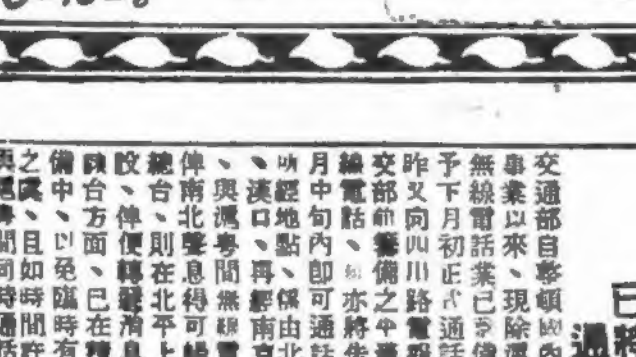 已將
過
交通部自整頓國內
事業以來、現除滬
無線電話業已籌備
予下月初正式通話
昨又向四川路電報
交部前籌備之平漢
線電話、亦將先
月中旬內即可通話
所經地點、係由北
、漢口、再經南京
、與滬粵間無線電
俾南北聲息得可暢
總台、則在北平上
設、俾便轉遞消息
台方面、已在積
備中、以免臨時有
之虞、且如時間許
與滬粵間同時通話